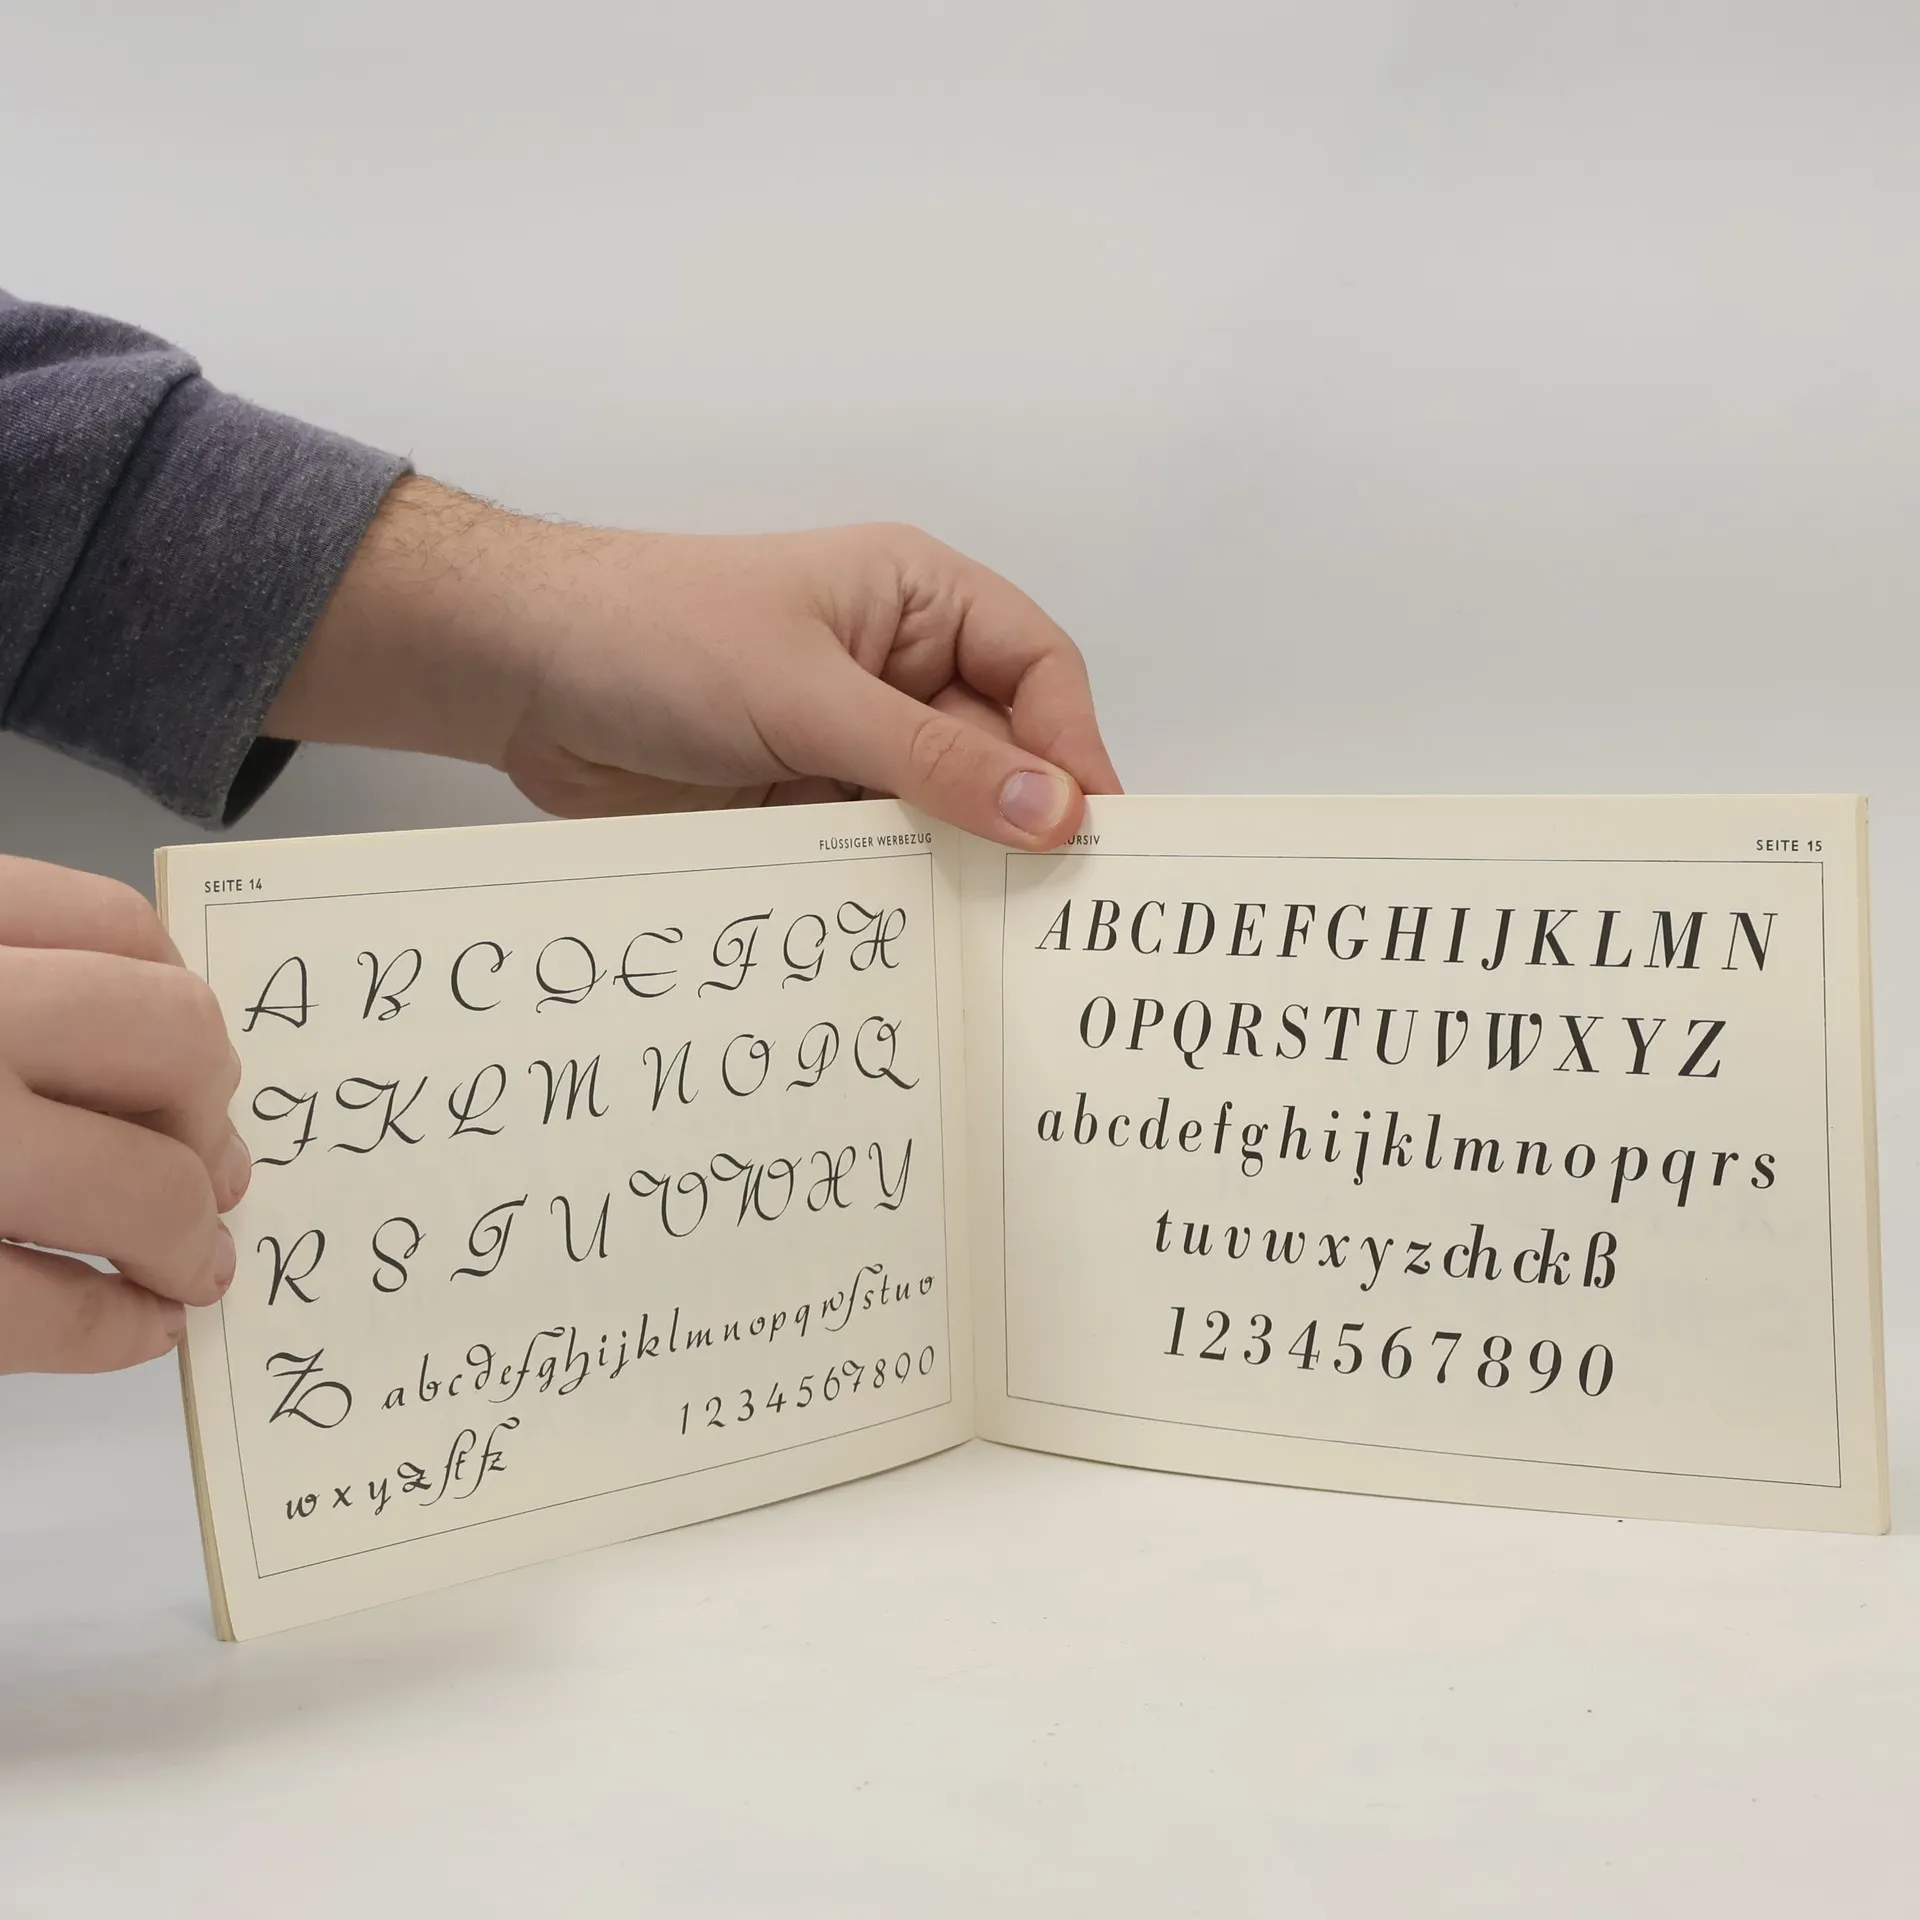 SEITE 14
FLÜSSIGER WERBEZUG
A B C D E F G H
J K L M N O P Q
R S T U V W X Y
Z a b c d e f g h i j k l m n o p q r ſ s t u v
w x y z ſt tz
1 2 3 4 5 6 7 8 9 0
SEITE 15
A B C D E F G H I J K L M N
O P Q R S T U V W X Y Z
a b c d e f g h i j k l m n o p q r s
t u v w x y z ch ck ß
1 2 3 4 5 6 7 8 9 0